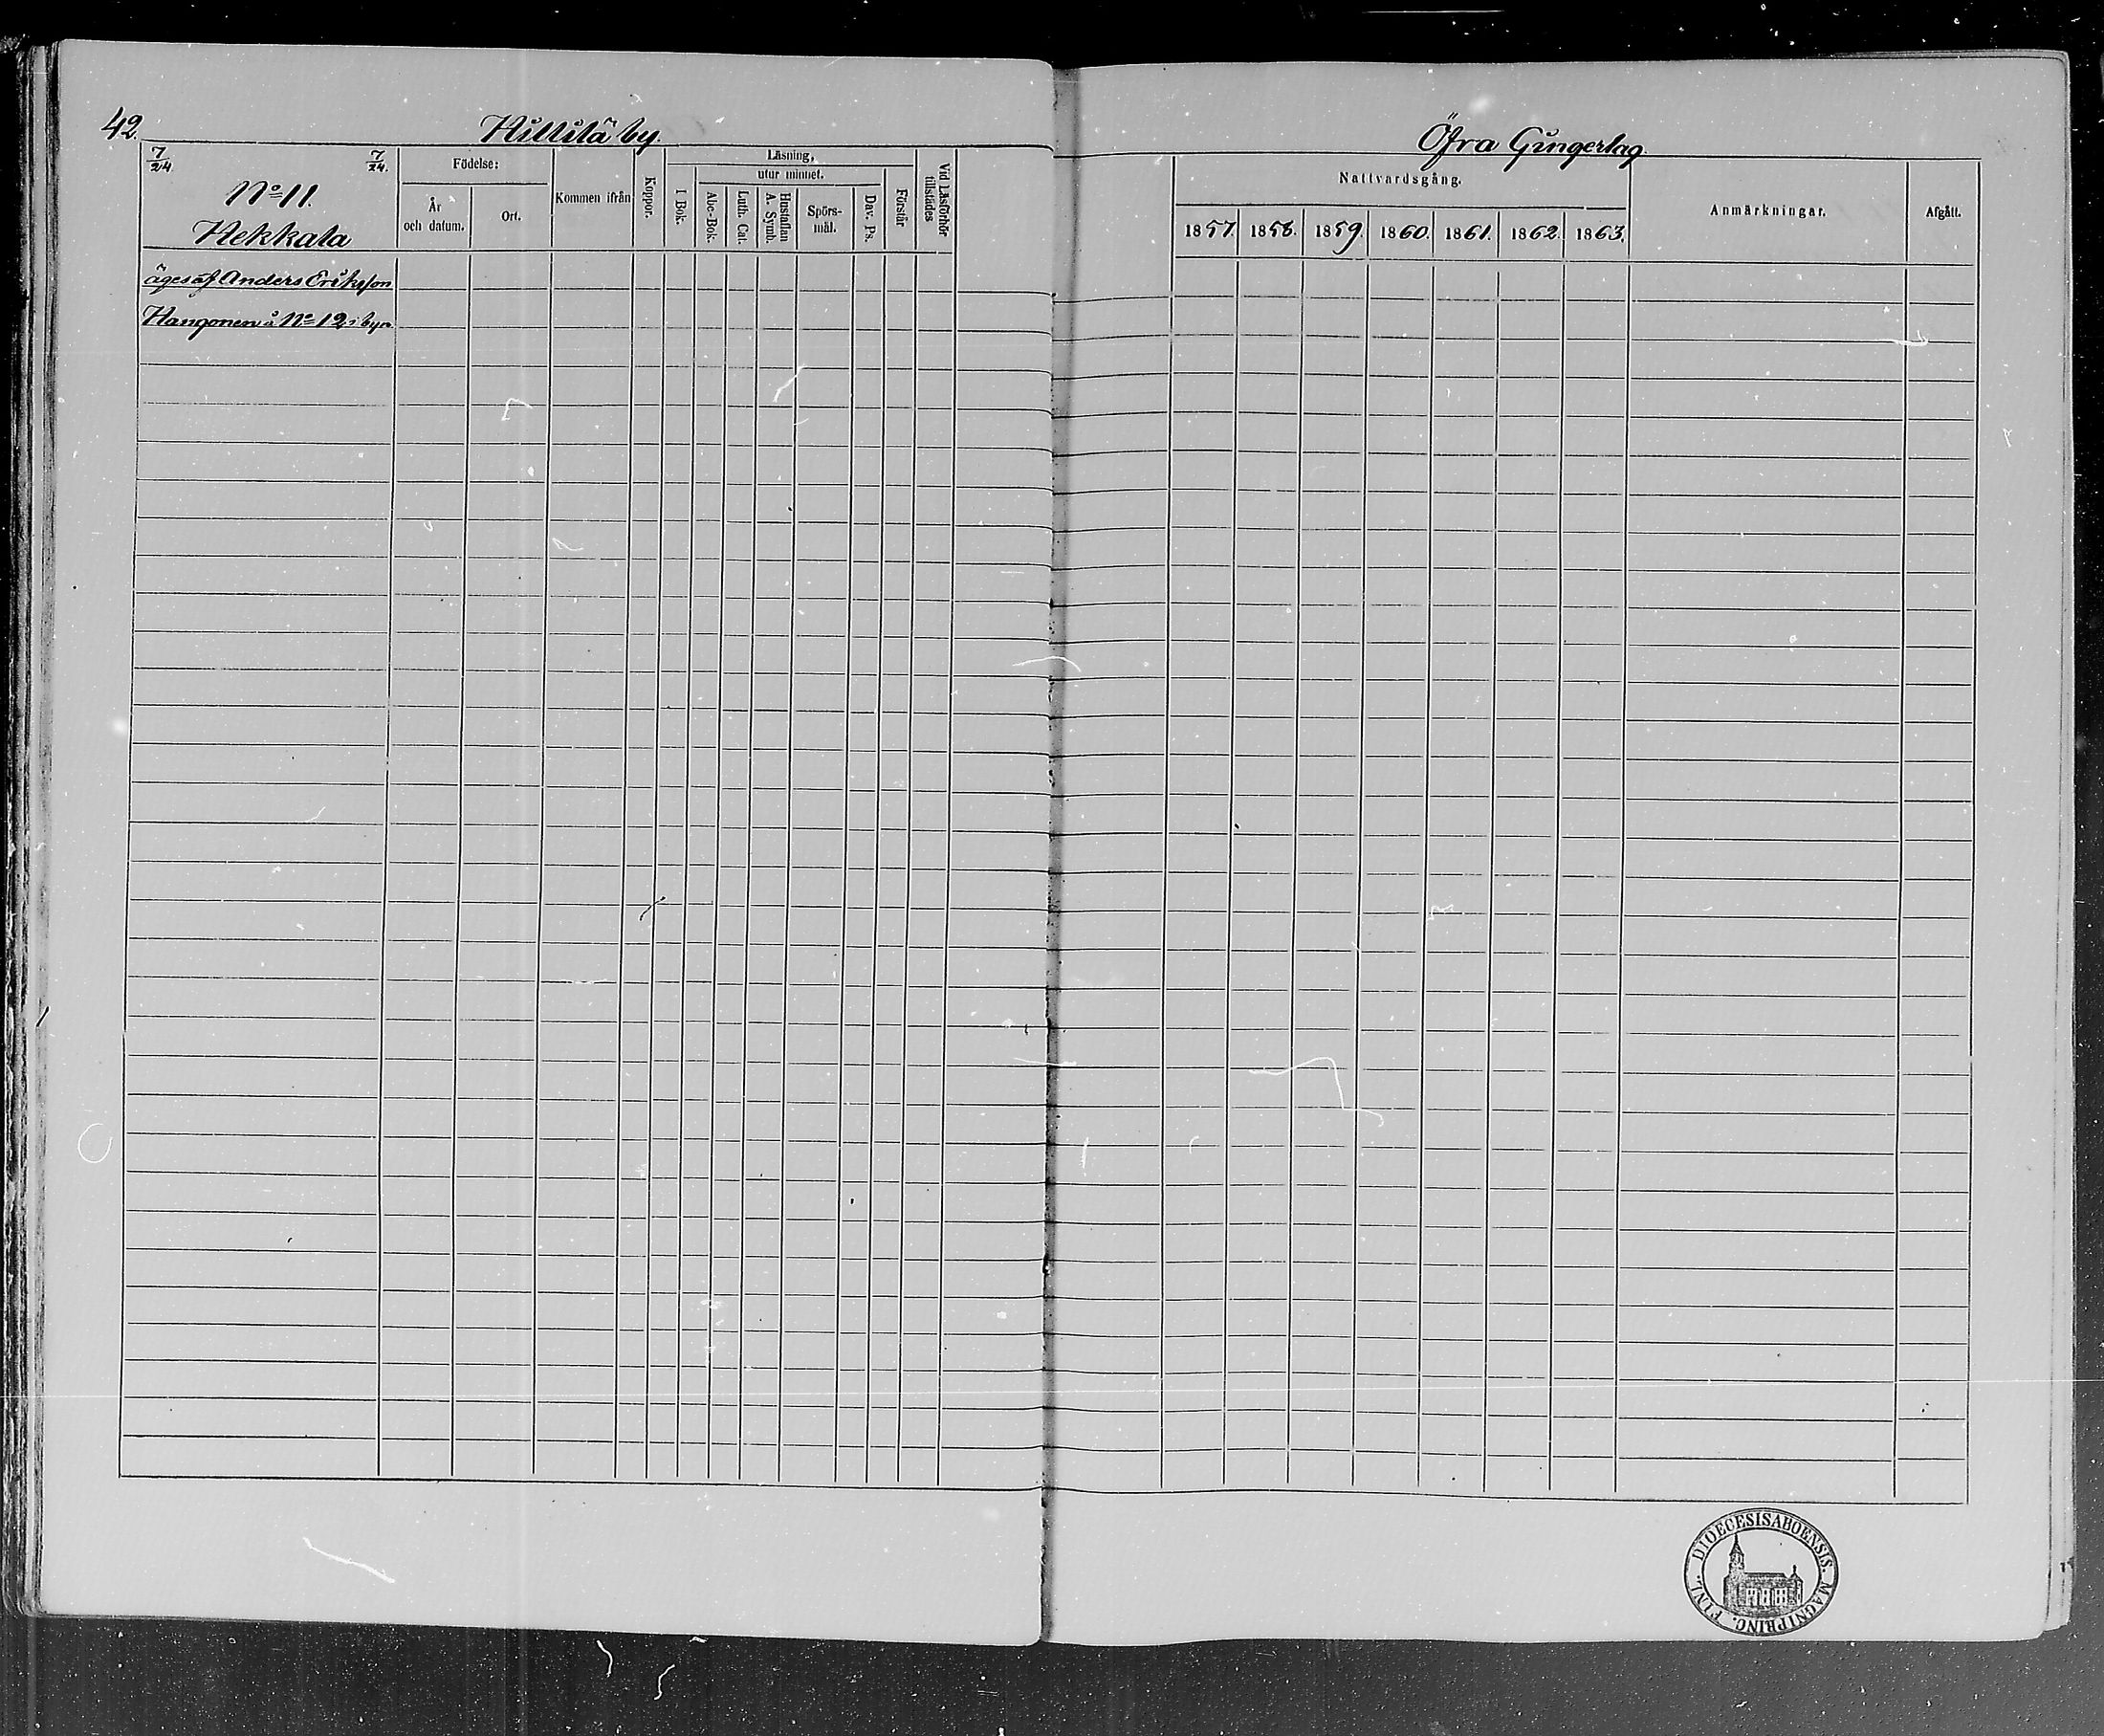 42.
Hillilä by.
7/24
7/24.
No 11.
Hekkala
Födelse:
År
och datum.
Ort.
Kommen ifrån
Koppor.
Läsning,
utur minnet.
I Bok.
Abc-Bok.
Luth. Cat.
Hustaflan
A. Symb.
Spörs-
mål.
Dav. Ps.
Förstår
Vid Läsförhör
tillstädes
äges af Anders Eriksson
Hangonen å No 12 i byn
Öfra Gingerlag
Nattvardsgång.
1857.
1858.
1859.
1860.
1861.
1862.
1863.
Anmärkningar.
Afgått.
DIOECESIS ABOENSIS. MAGNI PRINC. FINL.